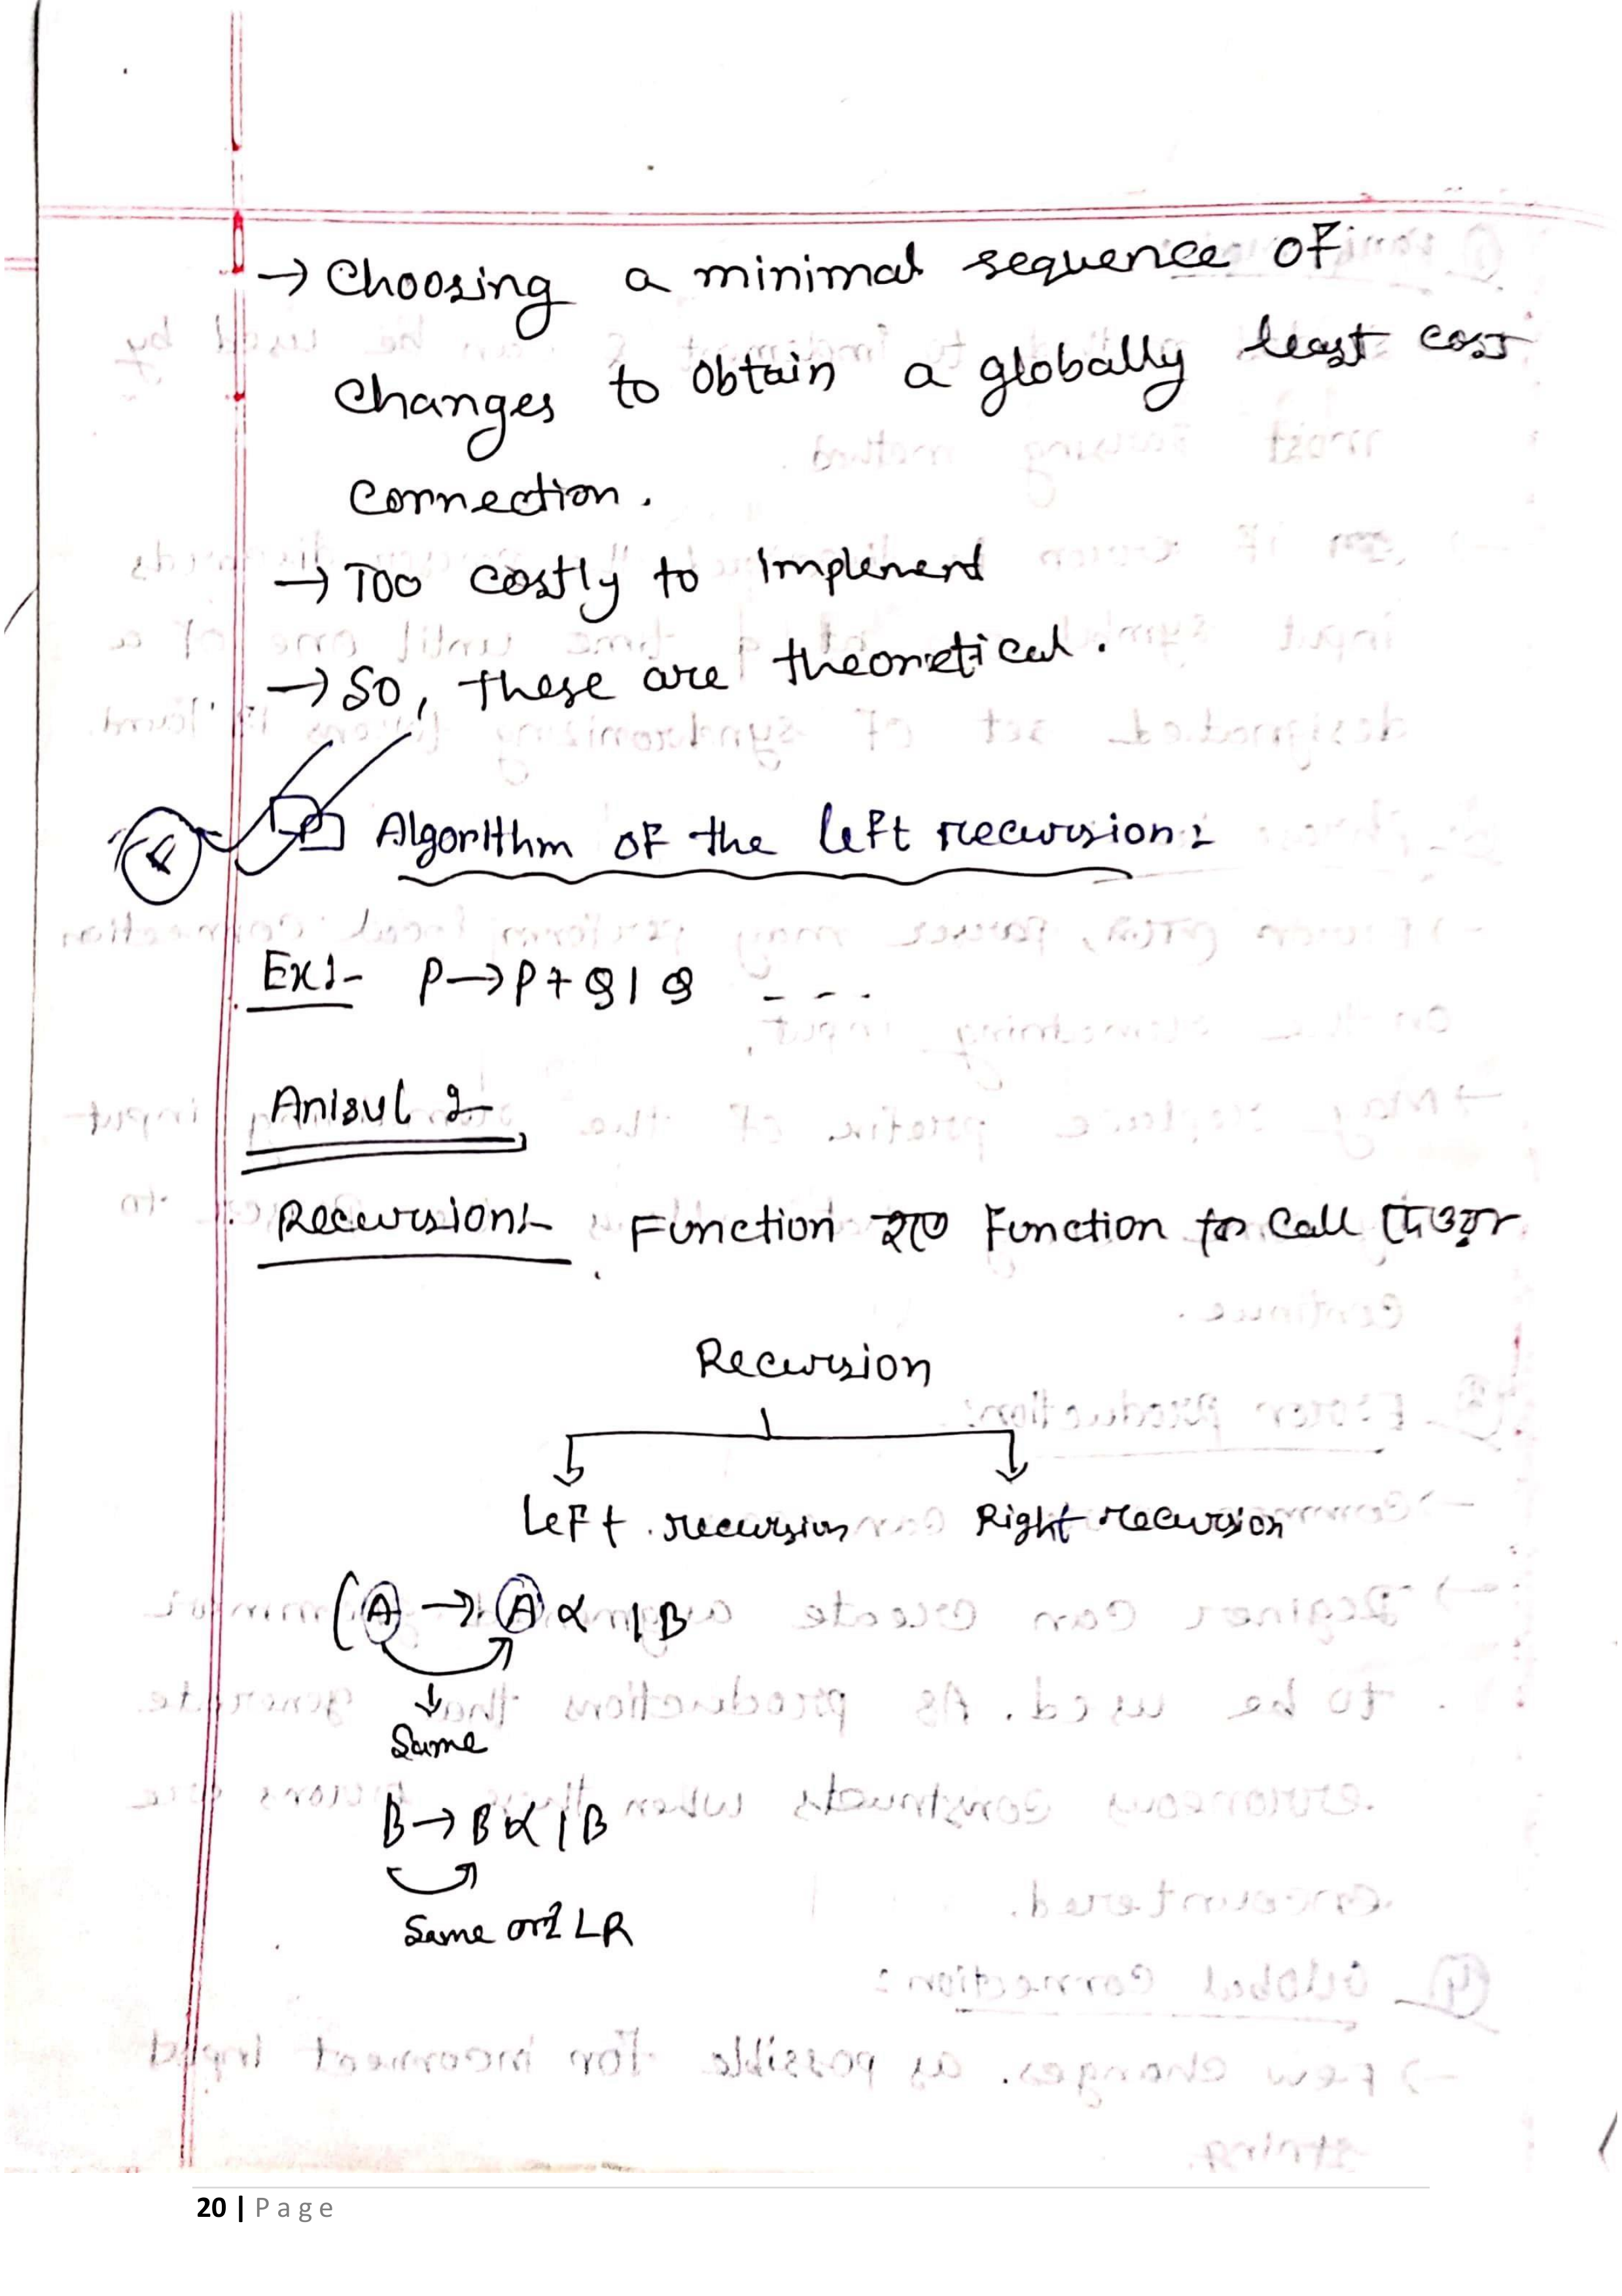 → Choosing a minimal sequence of
changes to obtain a globally least cost
connection.
→ Too costly to implement
→ So, these are theoretical.
Algorithm of the left recursion:
Ex:- P → P + Q | Q ----
Anisul
Recursion:- Function হতে Function call
Recursion
Left recursion Right recursion
(A → A α | B
↓
Same
B → B α | B
Same LR
20 | Page